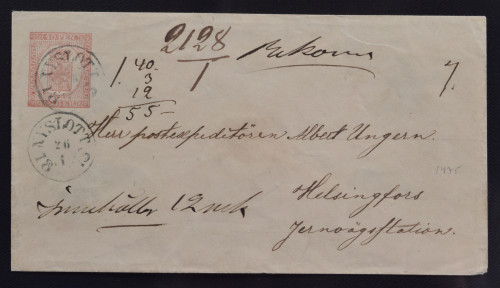 2128
1
Rekom
7.
1. 40.
3
12
55-
NYSLOTT
NYSLOTT
26
1
Herr postexpeditören Albert Ungern.
Helsingfors
Jernvägsstation.
Innehåller 12 mk
1875